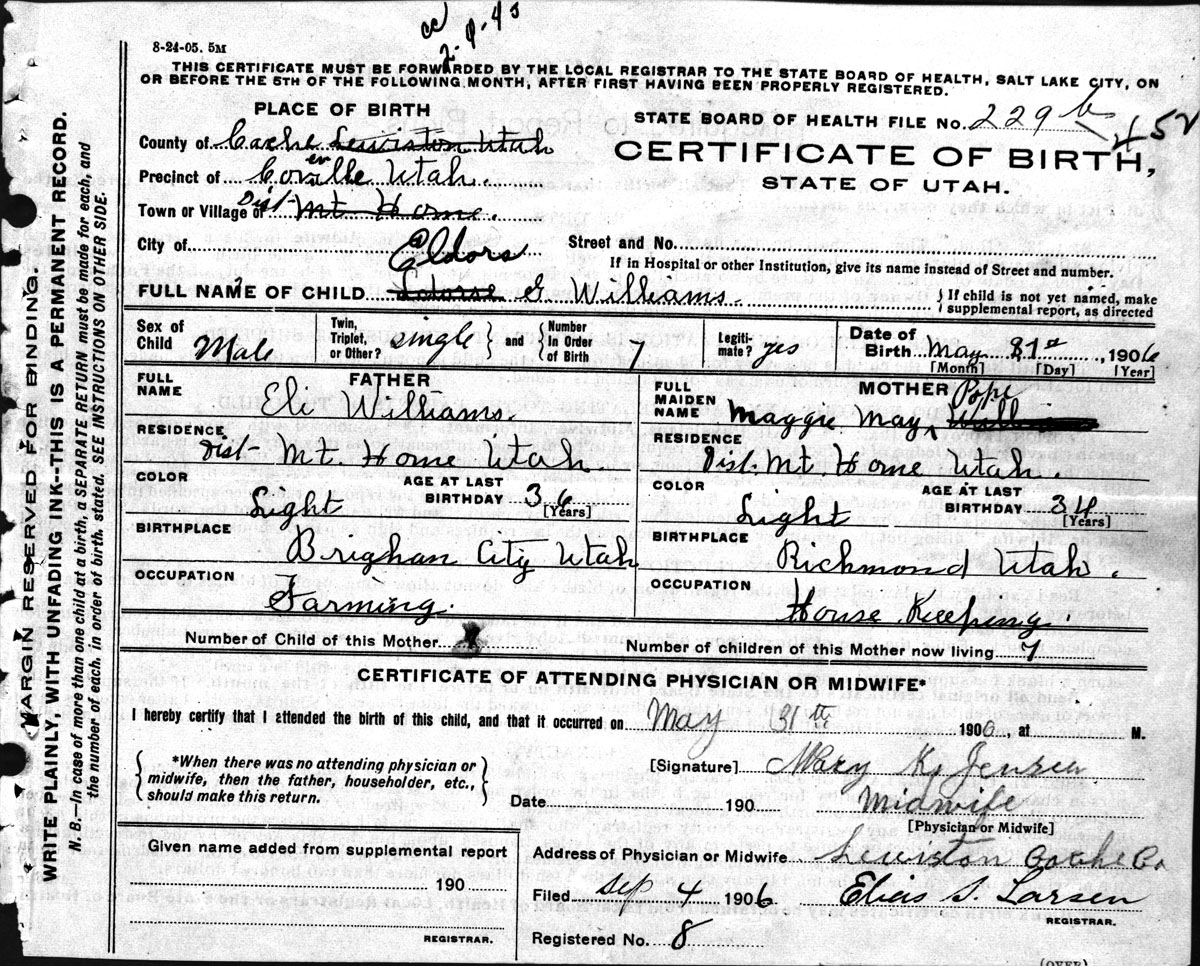 8-24-05. 5M
THIS CERTIFICATE MUST BE FORWARDED BY THE LOCAL REGISTRAR TO THE STATE BOARD OF HEALTH, SALT LAKE CITY, ON
OR BEFORE THE 5TH OF THE FOLLOWING MONTH, AFTER FIRST HAVING BEEN PROPERLY REGISTERED.
PLACE OF BIRTH
STATE BOARD OF HEALTH FILE No. 229 b 452
County of Cache Lewiston Utah
CERTIFICATE OF BIRTH,
STATE OF UTAH.
Precinct of Coveville Utah.
Town or Village of Dist Mt Home.
City of
Street and No.
If in Hospital or other Institution, give its name instead of Street and number.
Eldors
FULL NAME OF CHILD G Williams.
{ If child is not yet named, make
supplemental report, as directed
Sex of Child Male
Twin, Triplet, or Other? single } and { Number In Order of Birth 7
Legitimate? yes
Date of Birth May 31st, 1906
[Month] [Day] [Year]
FATHER
FULL NAME Eli Williams.
MOTHER
FULL MAIDEN NAME Maggie May Pope
RESIDENCE Dist- Mt. Home Utah.
RESIDENCE Dist. Mt Home Utah.
COLOR Light
AGE AT LAST BIRTHDAY 36 [Years]
COLOR Light
AGE AT LAST BIRTHDAY 34 [Years]
BIRTHPLACE Brighan City Utah
BIRTHPLACE Richmond Utah.
OCCUPATION Farming.
OCCUPATION House Keeping.
Number of Child of this Mother
Number of children of this Mother now living 7
CERTIFICATE OF ATTENDING PHYSICIAN OR MIDWIFE*
I hereby certify that I attended the birth of this child, and that it occurred on May 31th 1906, at M.
{ *When there was no attending physician or
midwife, then the father, householder, etc.,
should make this return. }
[Signature] Mary K. Jensen
Date 190
Midwife
[Physician or Midwife]
Given name added from supplemental report
190
REGISTRAR.
Address of Physician or Midwife Lewiston Cache Co
Filed Sep 4 1906
Elias S. Larsen
REGISTRAR.
Registered No. 8
(OVER)
MARGIN RESERVED FOR BINDING.
WRITE PLAINLY, WITH UNFADING INK--THIS IS A PERMANENT RECORD.
N. B.—In case of more than one child at a birth, a SEPARATE RETURN must be made for each, and
the number of each, in order of birth, stated. SEE INSTRUCTIONS ON OTHER SIDE.